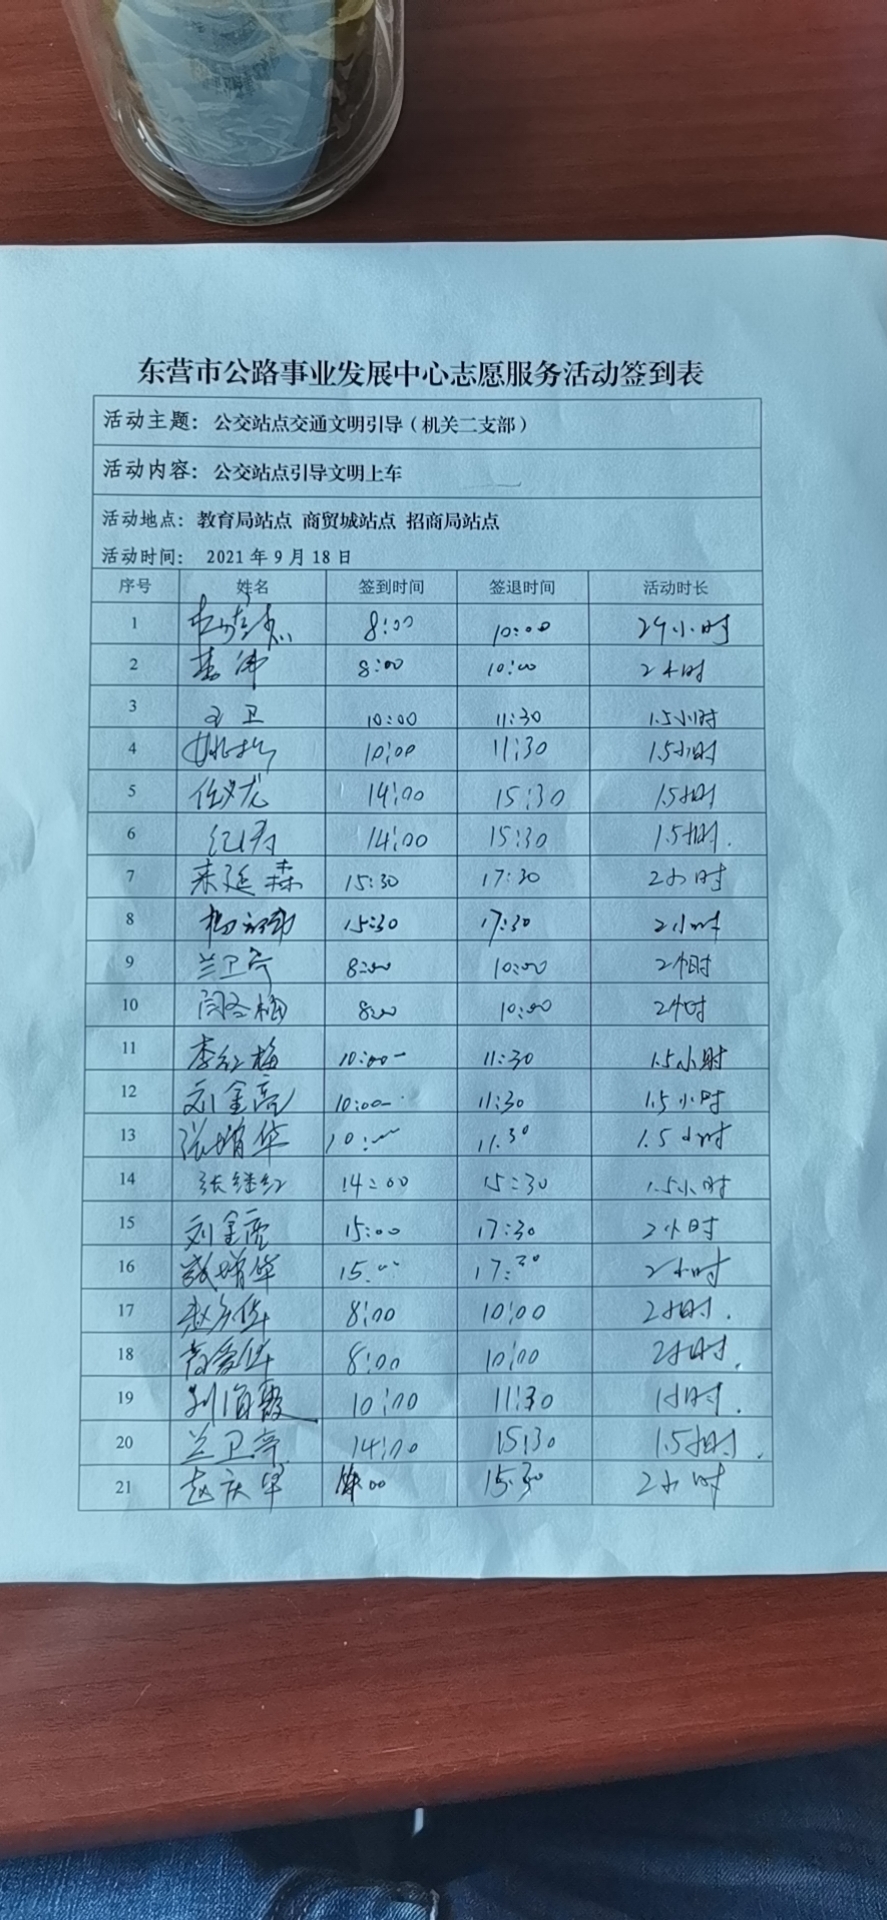 东营市公路事业发展中心志愿服务活动签到表
活动主题： 公交站点交通文明引导（机关二支部）
活动内容： 公交站点引导文明上车
活动地点： 教育局站点 商贸城站点 招商局站点
活动时间： 2021年9月18日
序号 姓名 签到时间 签退时间 活动时长
1 8:00 10:00 小时
2 8:00 10:00 2小时
3 卫 10:00 11:30 1.5小时
4 10:00 11:30 1.5小时
5 任义龙 14:00 15:30 1.5小时
6 14:00 15:30 1.5小时.
7 来延森 15:30 17:30 2小时
8 杨 15:30 17:30 2小时
9 兰卫 8:00 10:00 2小时
10 闫冬梅 8:00 10:00 2小时
11 李红梅 10:00 11:30 1.5小时
12 刘金亮 10:00 11:30 1.5小时
13 张增华 10:00 11:30 1.5小时
14 张继红 14:00 15:30 1.5小时
15 刘金亮 15:00 17:30 2小时
16 张增华 15:00 17:30 2小时
17 赵 华 8:00 10:00 2小时.
18 华 8:00 10:00 2小时.
19 刘海霞 10:00 11:30 1小时.
20 兰卫 14:00 15:30 1.5小时.
21 赵庆华 :00 15:30 2小时